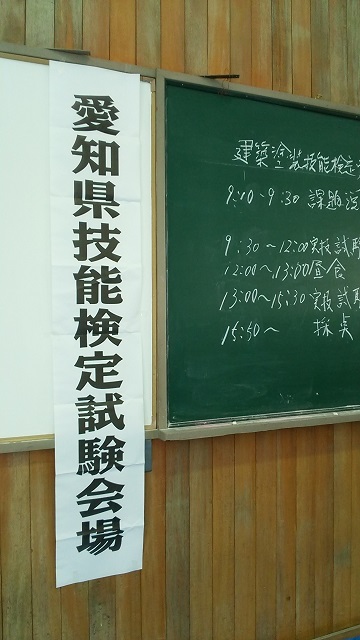 愛知県技能検定試験会場
建築塗装技能検定
9:10~9:30 課題
9:30~12:00実技試験
12:00~13:00昼食
13:00~15:30実技試験
15:50~ 採点